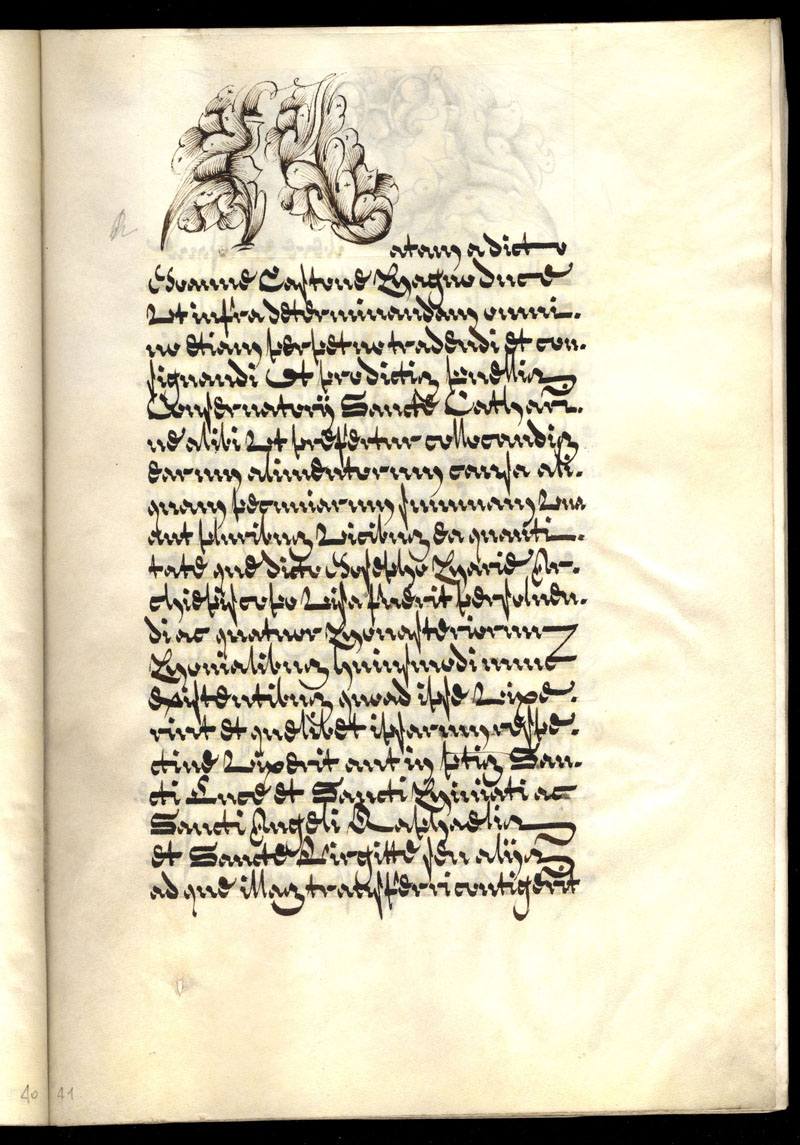 R
Ratam a dicto
Joanne Castone Magno Duce
Ut infra determinandam omni-
no etiam perpetuo tradendi et con-
signandi Et prodictis puellis
Conservatorij Sancte Cathari-
ne alibi Ut prefertur collocandis
earum alimentorum causa ali-
quam pecuniarum summam Una
aut pluribus Vicibus ea quanti-
tate que dicto Josepho Marie Ar-
chiepiscopo Visa fuerit persolven-
di ac quatuor Monasteriorum
Monialibus huiusmodi nunc
existentibus quoad ipse Vixe-
rint et quelibet ipsarum respe-
ctive Vixerit aut in ptis San-
cti Luce et Sancti Miniati ac
Sancti Angeli Raphaelis
et Sancte Birgitte seu alijs
ad que illas transferri contigerit
40 41